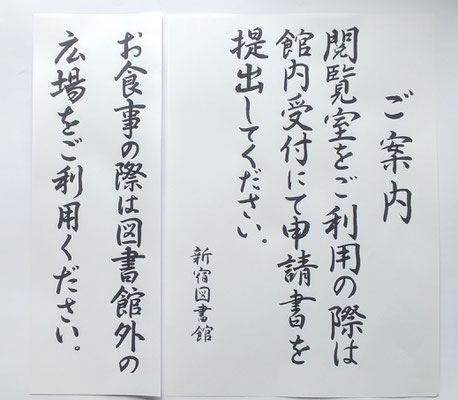 ご案内
閲覧室をご利用の際は
館内受付にて申請書を
提出してください。
新宿図書館
お食事の際は図書館外の
広場をご利用ください。